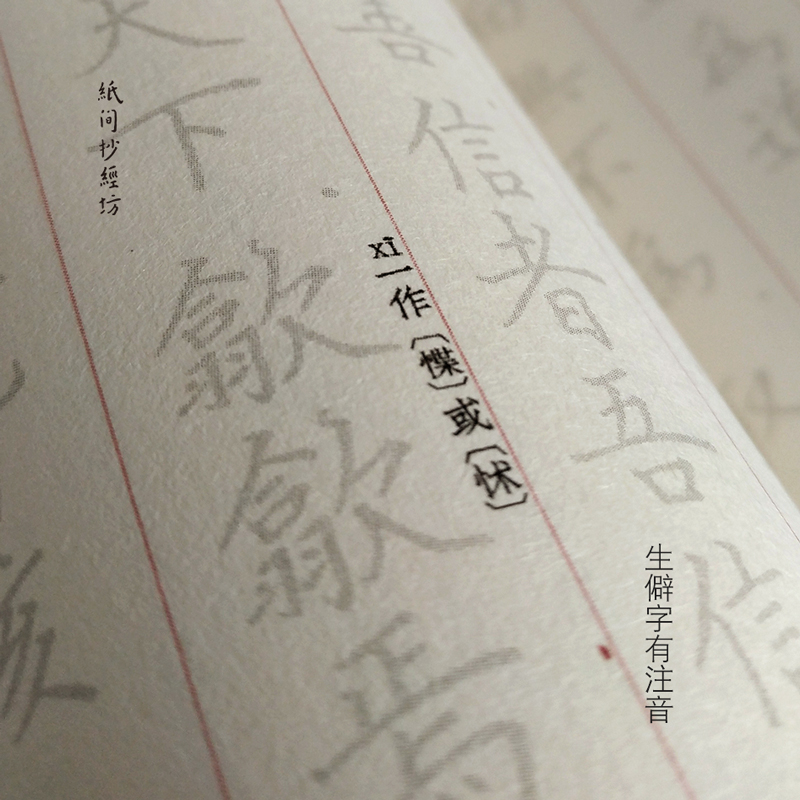 善信者吾信
xī一作〔惵〕或〔怵〕
天下歙歙焉
紙间抄經坊
生僻字有注音